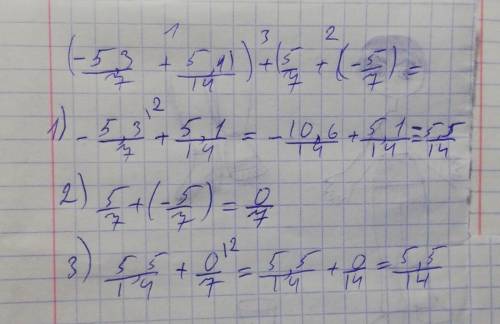 (-5,3/7 + 5,1/14) + (5/7 + (-5/7) =
1) -5,3/7 + 5,1/14 = -10,6/14 + 5,1/14 = 5,5/14
2) 5/7 + (-5/7) = 0/7
3) 5,5/14 + 0/7 = 5,5/14 + 0/14 = 5,5/14